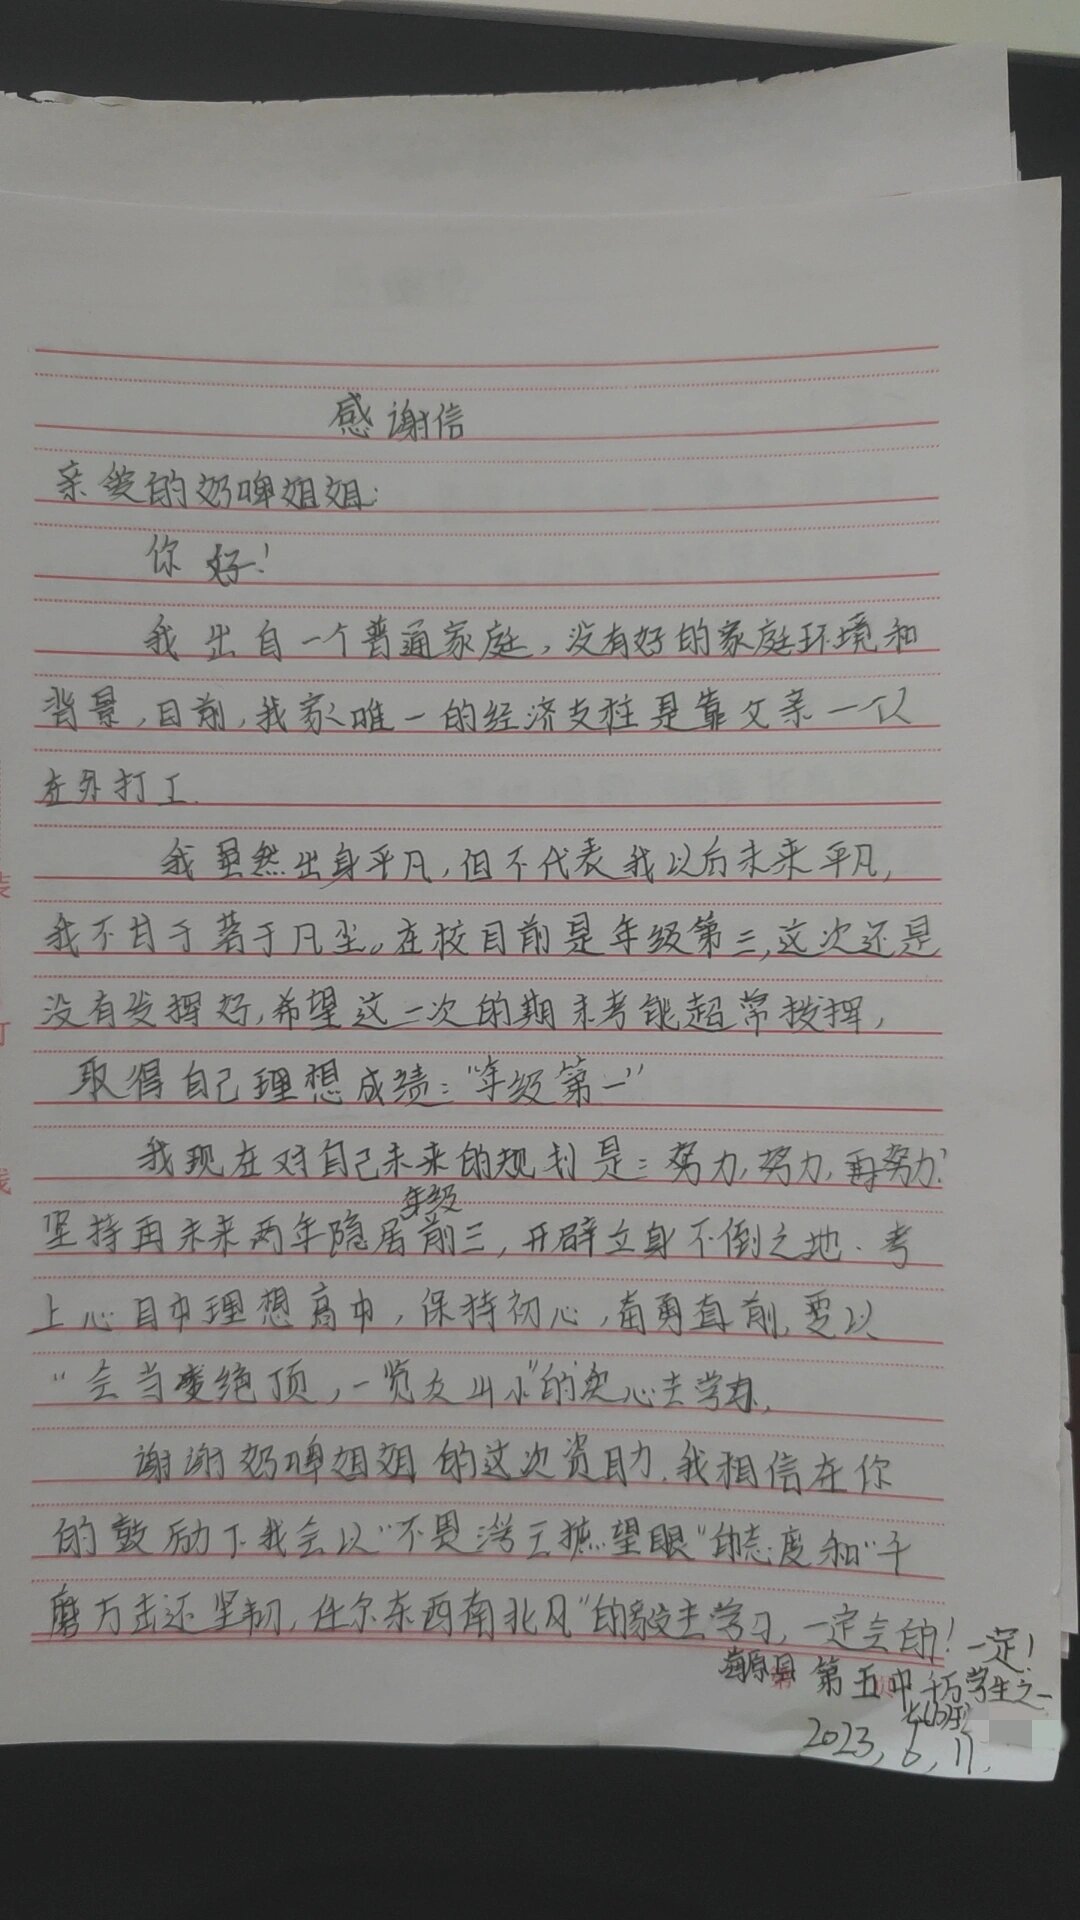 感谢信
亲爱的奶啤姐姐:
你好!
我出自一个普通家庭,没有好的家庭环境和
背景,目前,我家唯一的经济支柱是靠父亲一个人
在外打工.
我虽然出身平凡,但不代表我以后未来平凡,
我不甘于落于凡尘。在校目前是年级第三,这次还是
没有发挥好,希望这一次的期末考能超常拨挥,
取得自己理想成绩:"年级第一"
我现在对自己未来的规划是:努力,努力,再努力!
年级
坚持再未来两年隐居前三,开辟立身不倒之地.考
上心目中理想高中,保持初心,奋勇直前,要以
"会当凌绝顶,一览众山小"的决心去学办,
谢谢奶啤姐姐的这次资助.我相信在你
的鼓励下我会以"不畏浮云遮望眼"的态度和"千
磨万击还坚韧,任尔东西南北风"的毅去学习,一定会的!一定!
海原县第五中千万学生之一
七(10)班
2023,6,17,